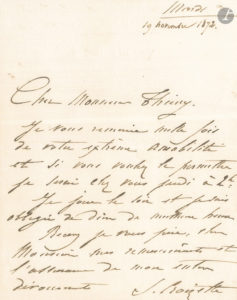 Mardi
19 novembre 1872.
Cher Monsieur Thierry.
Je vous remercie mille fois
de votre extrême amabilité
et si vous voulez le permettre
je serai chez vous jeudi à 2h
Je joue le soir et je suis
obligée de dîner de
Recevez je vous prie, cher
Monsieur mes remerciements et
l'assurance de mon entier
dévouement